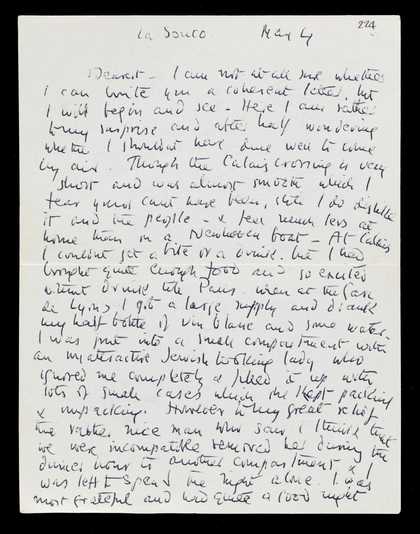 224
La Souco May 4
Dearest – I am not at all sure whether
I can write you a coherent letter, but
I will begin and see – Here I am rather
to my surprise and after half wondering
whether I shouldn't have done well to come
by air. Though the Calais crossing is very
short and was almost smooth which I
fear yours can't have been, still I do dislike
it and the people – & feel much less at
home than in a Newhaven boat – At Calais
I couldn't get a bite or a drink. but I had
brought quite enough food and so existed
without drink till Paris. when at the Gare
de Lyons I got a large supply and drank
my half bottle of vin blanc and some water.
I was put into a small compartment with
an unattractive Jewish looking lady who
ignored me completely & piled it up with
lots of small cases which she kept packing
& unpacking. However to my great relief
the rather nice man who saw I think that
we were incompatible removed her during the
dinner hour to another compartment & I
was left to spend the night alone. I was
most grateful and had quite a good night